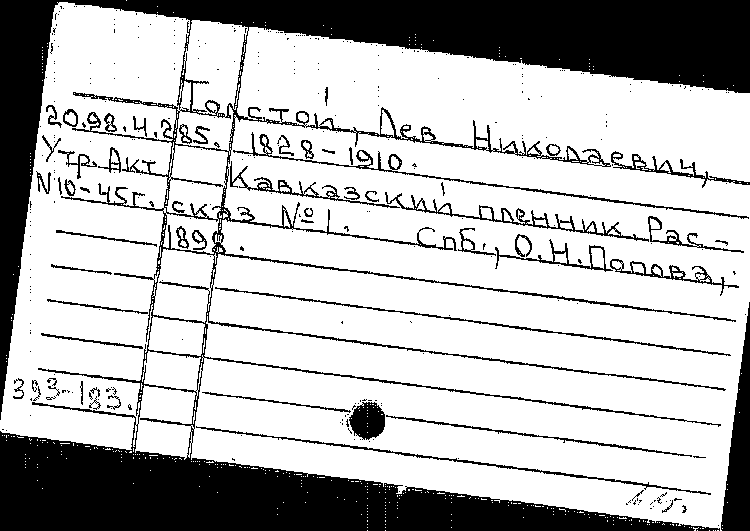 Толстой, Лев Николаевич,
20.98.4.285. 1828-1910.
Утр. Акт Кавказский пленник. Рас-
N10-45г. сказ №1. Спб., О.Н.Попова,
1898.
393-183.